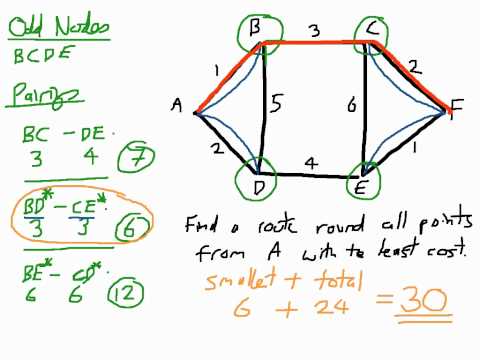 Odd Nodes
B C D E
Pairings
BC - DE.
3 4 7
BD* - CE*.
3 3 6
BE* - CD*
6 6 12
B 3 C
1 2
A 5 6 F
2 1
D 4 E
Find a route round all points
from A with te least cost.
smallest + total
6 + 24 = 30